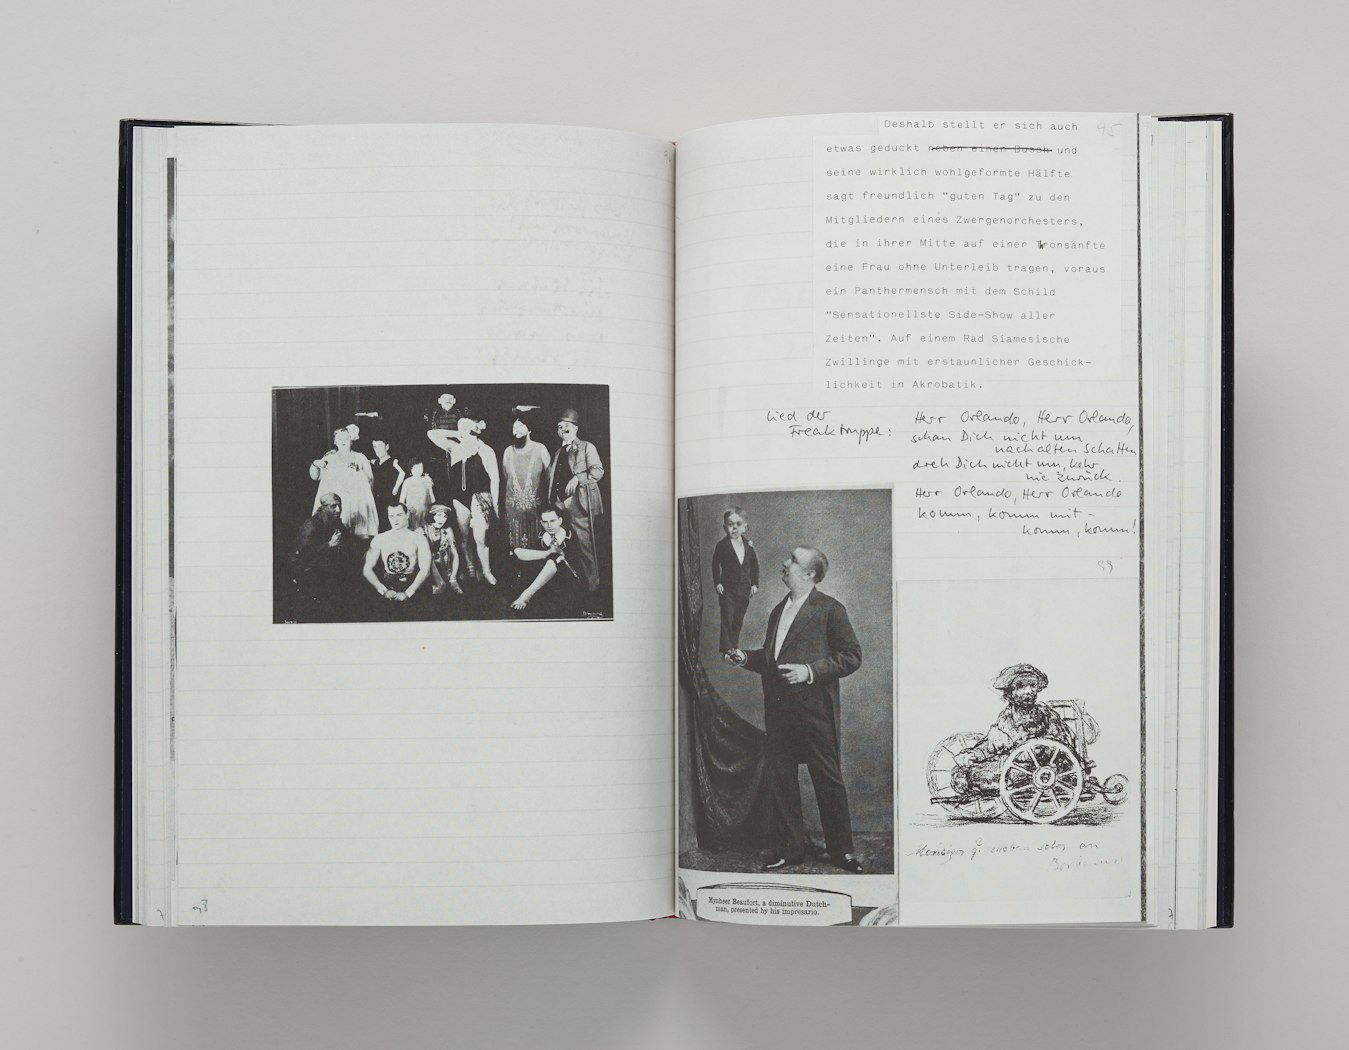 95
Deshalb stellt er sich auch
etwas geduckt neben einen Busch und
seine wirklich wohlgeformte Hälfte
sagt freundlich "guten Tag" zu den
Mitgliedern eines Zwergenorchesters,
die in ihrer Mitte auf einer Tronsänfte
eine Frau ohne Unterleib tragen, voraus
ein Panthermensch mit dem Schild
"Sensationellste Side-Show aller
Zeiten". Auf einem Rad Siamesische
Zwillinge mit erstaunlicher Geschick-
lichkeit in Akrobatik.
Lied der
Freaktruppe:
Herr Orlando, Herr Orlando,
schau Dich nicht um
nach alten Schatten
dreh Dich nicht um, kehr
nie zurück.
Herr Orlando, Herr Orlando
komm, komm mit -
komm, komm!
99
Mynheer Beaufort, a diminutive Dutch-
man, presented by his impresario.
Mendigos q. solos en
98